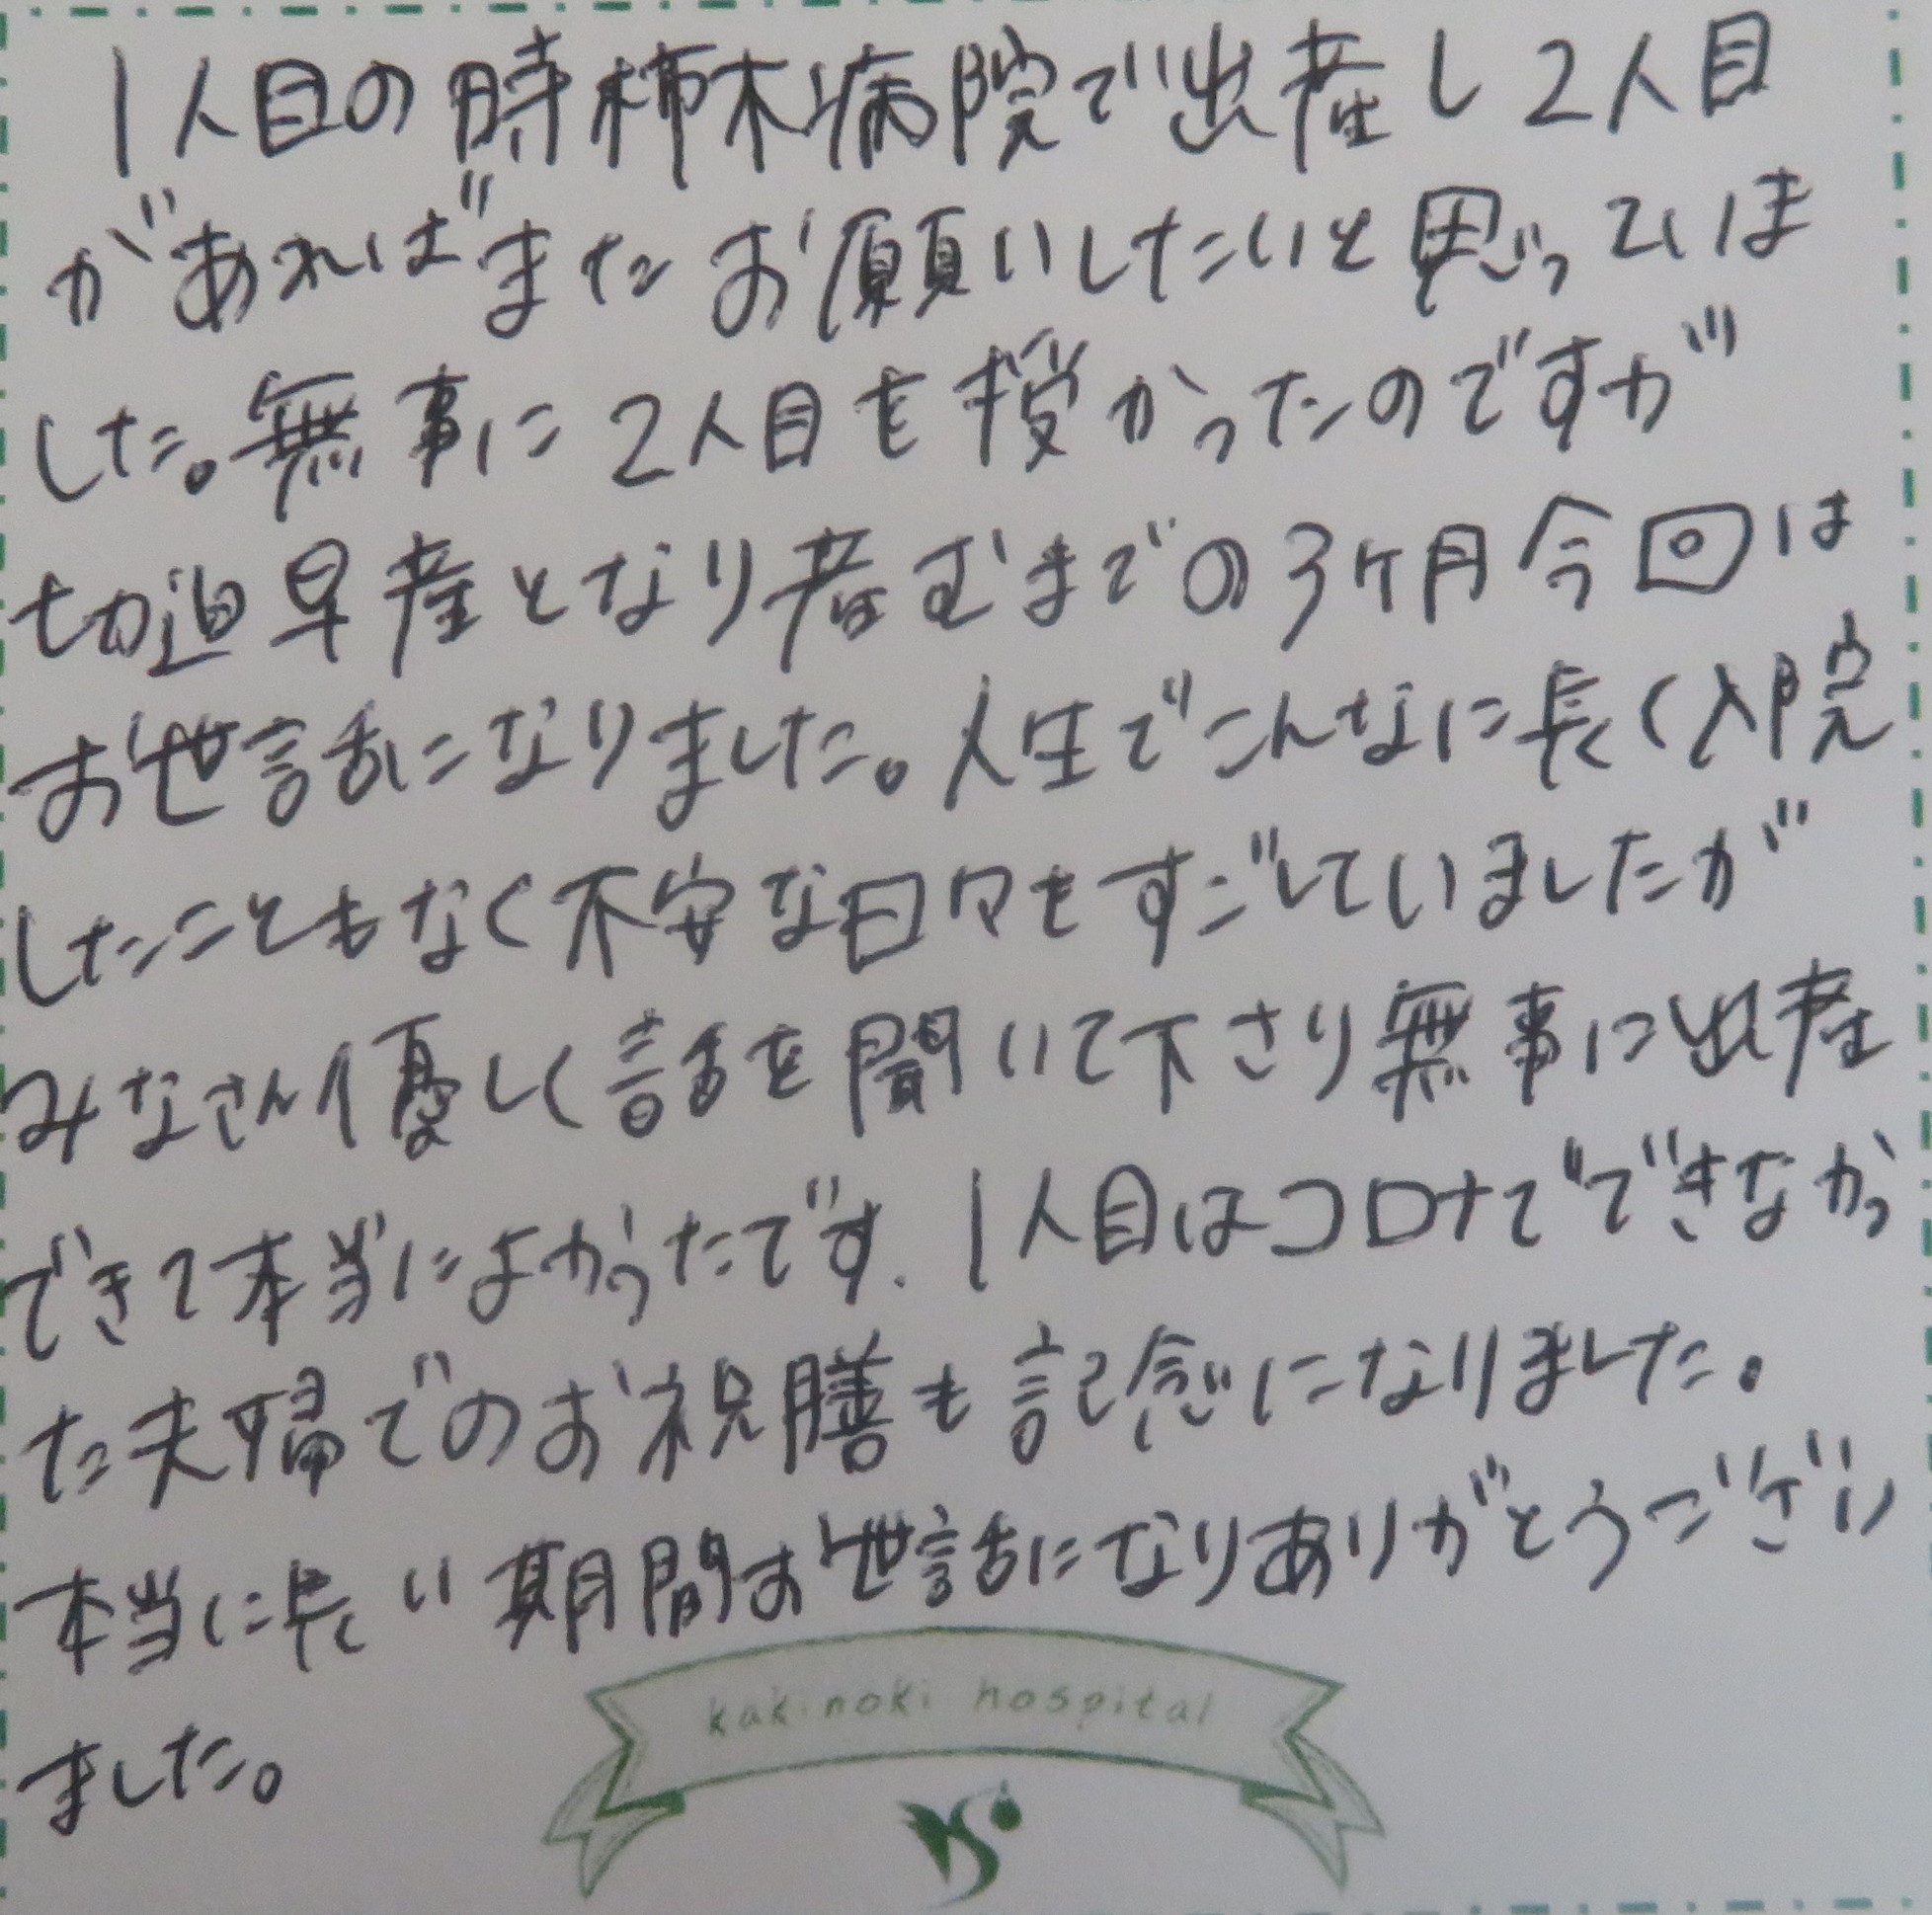 1人目の時柿木病院で出産し2人目
があればまたお願いしたいと思っていま
した。無事に2人目を授かったのですが
切迫早産となり産むまでの3ヶ月今回は
お世話になりました。人生でこんなに長く入院
したこともなく不安な日々をすごしていましたが
みなさん優しく話を聞いて下さり無事に出産
できて本当によかったです.1人目はコロナでできなかっ
た夫婦でのお祝膳も記念になりました。
本当に長い期間お世話になりありがとうござい
ました。
kakinoki hospital